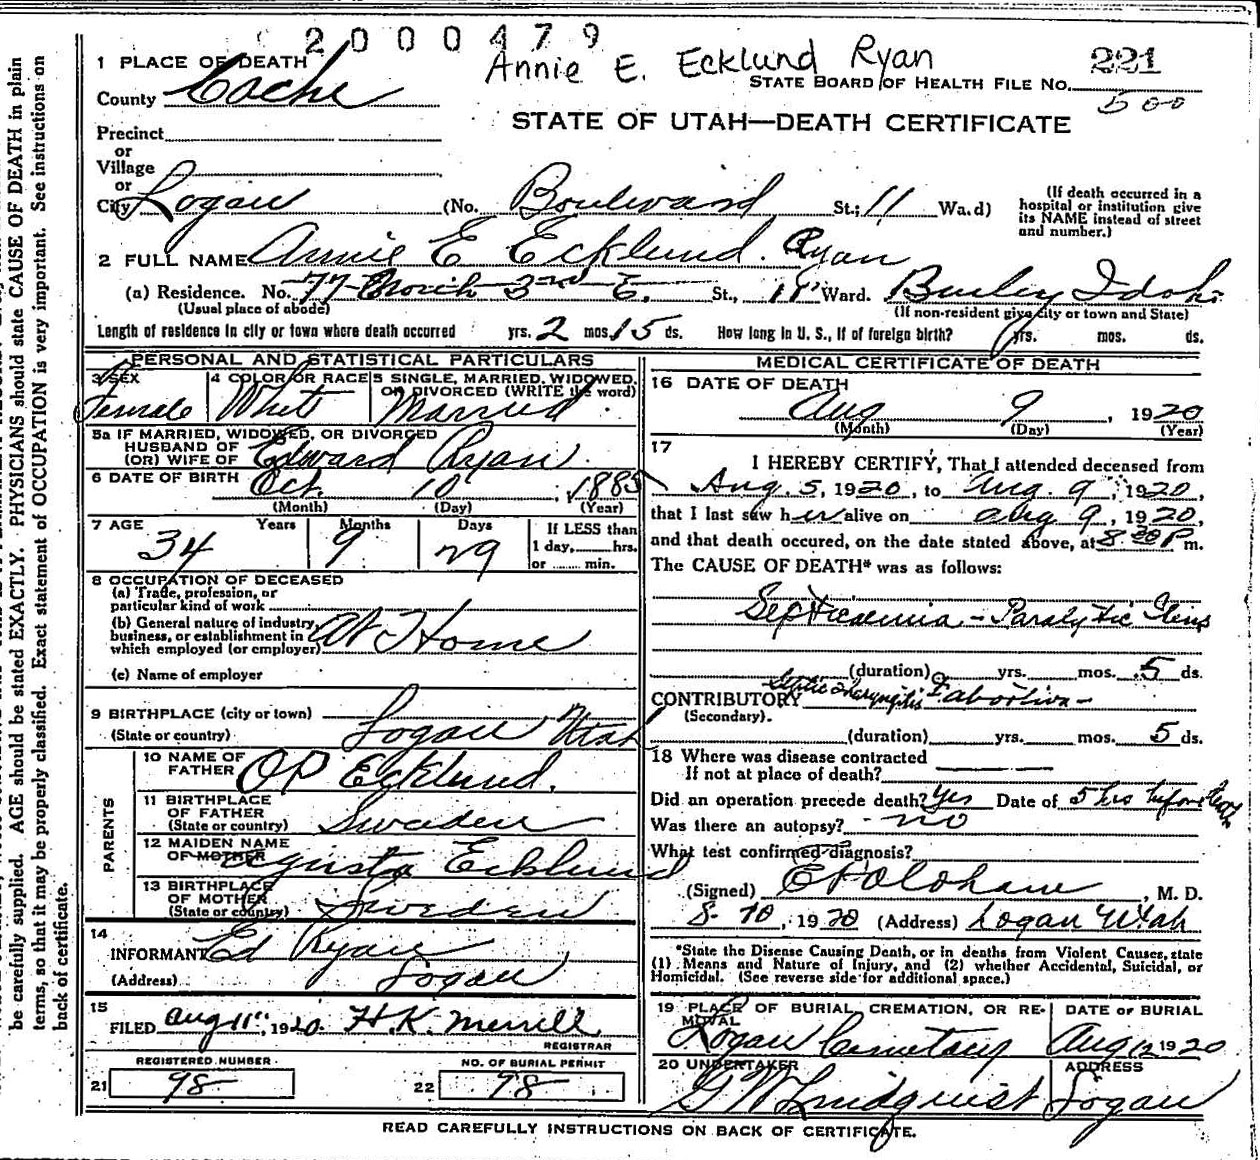 2000479
Annie E. Ecklund Ryan
1 PLACE OF DEATH
221
STATE BOARD OF HEALTH FILE No.
500
County Cache
STATE OF UTAH—DEATH CERTIFICATE
Precinct
or
Village
or
City Logan (No. Boulevard St.; 11 Wa.d)
(If death occurred in a hospital or institution give its NAME instead of street and number.)
2 FULL NAME Annie E Ecklund. Ryan
(a) Residence. No. 77 North 3rd E. St., 11 Ward. Burley Idaho
(Usual place of abode) (If non-resident give city or town and State)
Length of residence in city or town where death occurred yrs. 2 mos. 15 ds. How long in U. S., if of foreign birth? yrs. mos. ds.
PERSONAL AND STATISTICAL PARTICULARS
3 SEX 4 COLOR OR RACE 5 SINGLE, MARRIED, WIDOWED,
OR DIVORCED (WRITE the word)
Female White Married
5a IF MARRIED, WIDOWED, OR DIVORCED
HUSBAND OF
(OR) WIFE OF Edward Ryan
6 DATE OF BIRTH Oct. 10, 1885
(Month) (Day) (Year)
7 AGE Years Months Days If LESS than
34 9 29 1 day,......hrs.
or ...... min.
8 OCCUPATION OF DECEASED
(a) Trade, profession, or
particular kind of work
(b) General nature of industry,
business, or establishment in
which employed (or employer) At Home
(c) Name of employer
9 BIRTHPLACE (city or town)
(State or country) Logan Utah
PARENTS
10 NAME OF
FATHER OP Ecklund.
11 BIRTHPLACE
OF FATHER
(State or country) Sweden
12 MAIDEN NAME
OF MOTHER Augusta Ecklund
13 BIRTHPLACE
OF MOTHER
(State or country) Sweden
14
INFORMANT Ed Ryan
(Address) Logan
15
FILED Aug 11", 1920. H.K. Merrill
REGISTRAR
REGISTERED NUMBER NO. OF BURIAL PERMIT
21 98 22 98
MEDICAL CERTIFICATE OF DEATH
16 DATE OF DEATH
Aug 9 1920
(Month) (Day) (Year)
17
I HEREBY CERTIFY, That I attended deceased from
Aug. 5, 1920, to Aug. 9, 1920,
that I last saw her alive on Aug 9, 1920,
and that death occured, on the date stated above, at 8 P m.
The CAUSE OF DEATH* was as follows:
Septicaemia - Paralytic Ileus
(duration) yrs. mos. 5 ds.
CONTRIBUTORY Septic
(Secondary).
(duration) yrs. mos. 5 ds.
18 Where was disease contracted
If not at place of death?
Did an operation precede death? Yes Date of 5 hrs before
Was there an autopsy? no
What test confirmed diagnosis?
(Signed) , M. D.
8-10, 1920 (Address) Logan Utah
*State the Disease Causing Death, or in deaths from Violent Causes, state
(1) Means and Nature of Injury, and (2) whether Accidental, Suicidal, or
Homicidal. (See reverse side for additional space.)
19 PLACE OF BURIAL, CREMATION, OR RE- DATE OF BURIAL
MOVAL
Logan Cemetary Aug 12 1920
20 UNDERTAKER ADDRESS
G W Lindquist Logan
READ CAREFULLY INSTRUCTIONS ON BACK OF CERTIFICATE.
be carefully supplied. AGE should be stated EXACTLY. PHYSICIANS should state CAUSE OF DEATH in plain
terms, so that it may be properly classified. Exact statement of OCCUPATION is very important. See instructions on
back of certificate.